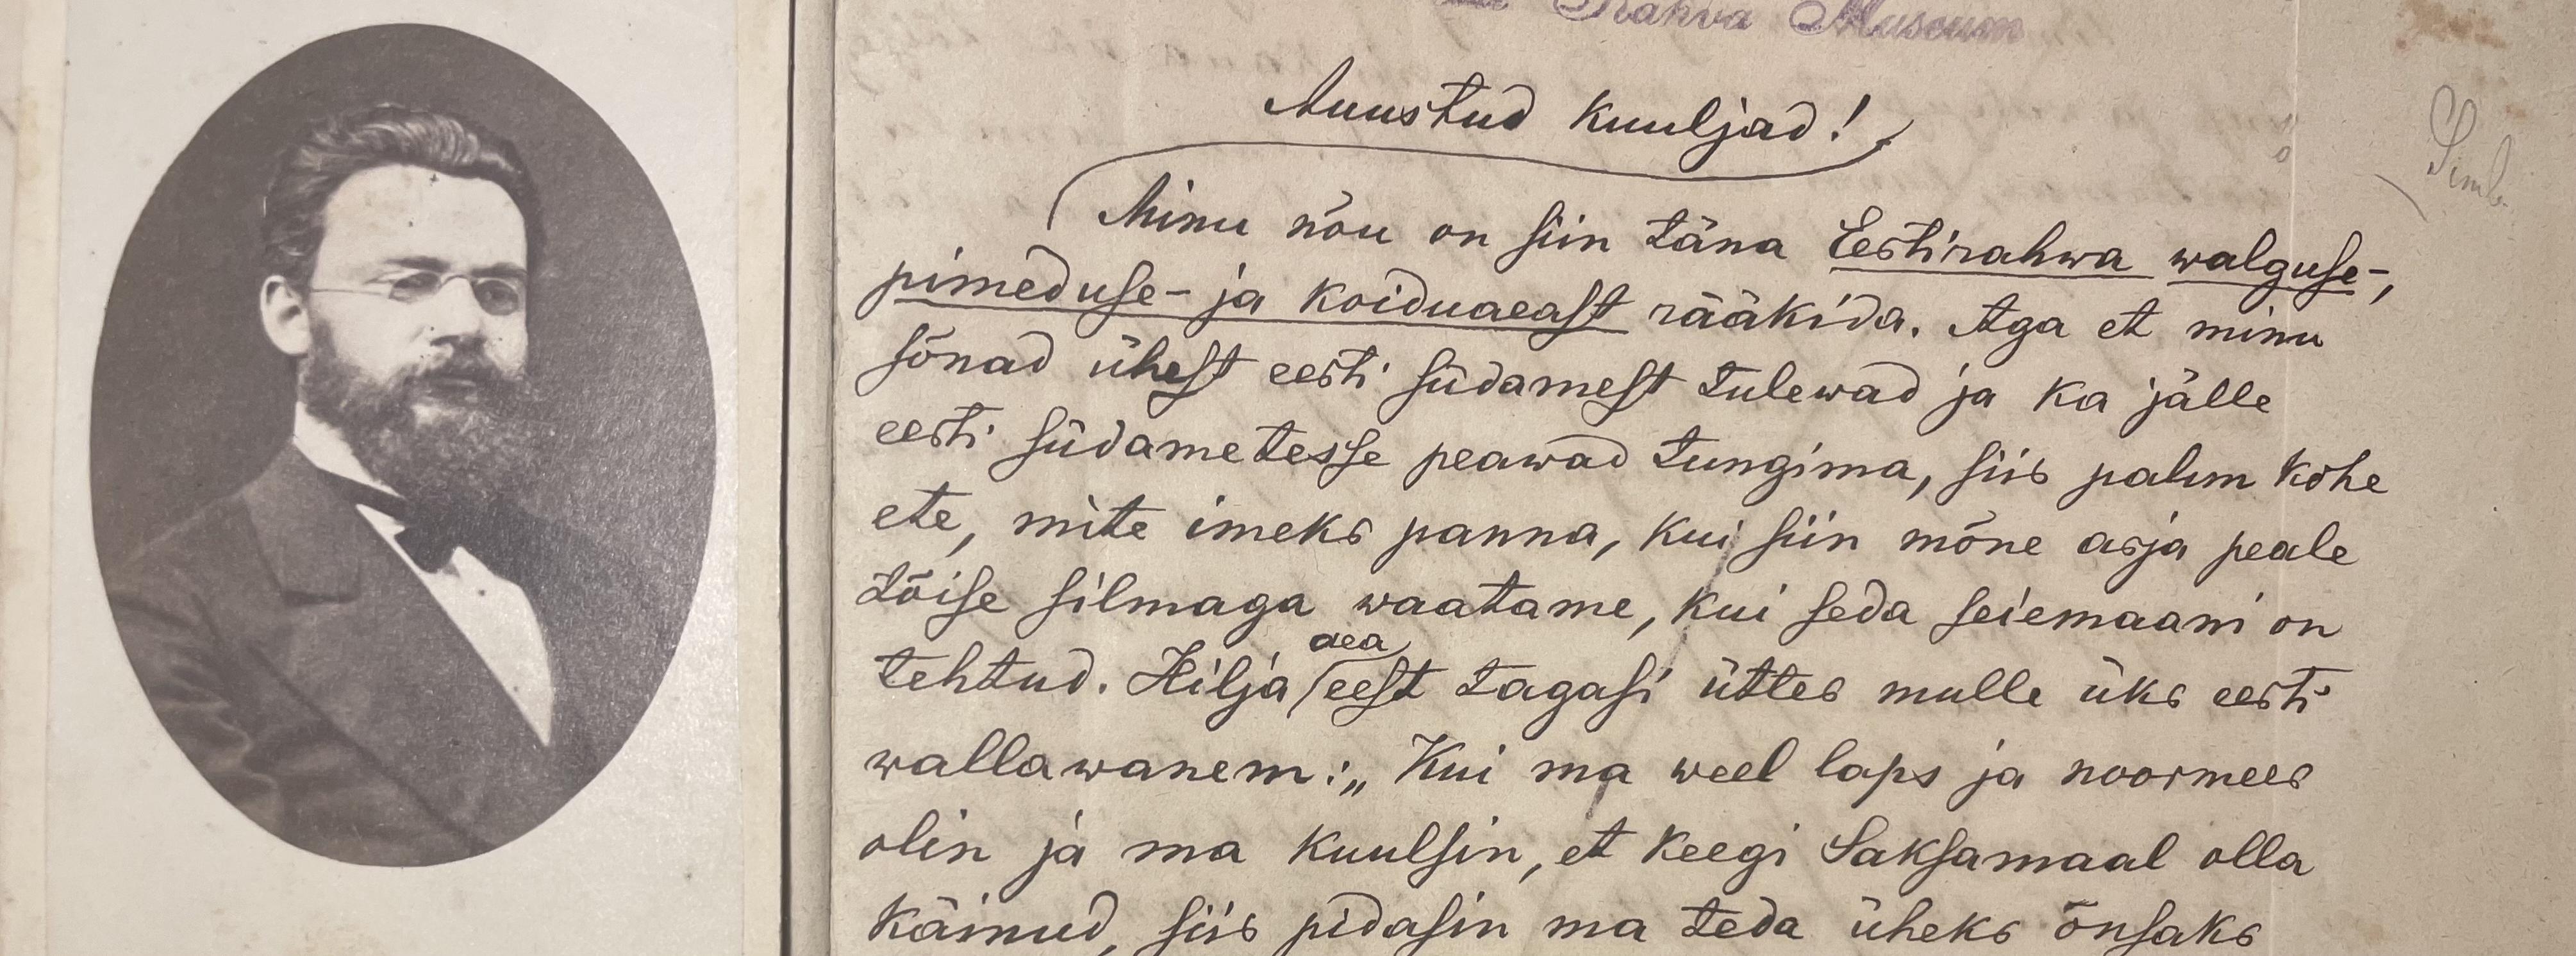 Rahva Museum
Auustud kuuljad!
Minu nõu on siin täna Eestirahwa walguse-,
pimeduse- ja koiduaeast rääkida. Aga et minu
sõnad ühest eesti südamest tulewad ja ka jälle
eesti südametesse peawad tungima, siis palun kohe
ete, mite imeks panna, kui siin mõne asja peale
tõise silmaga waatame, kui seda seiemaani on
aea
tehtud. Hilja eest tagasi üttes mulle üks eesti
wallawanem: „Kui ma weel laps ja noormees
olin ja ma kuulsin, et keegi Saksamaal olla
käinud, siis pidasin ma teda üheks õnsaks